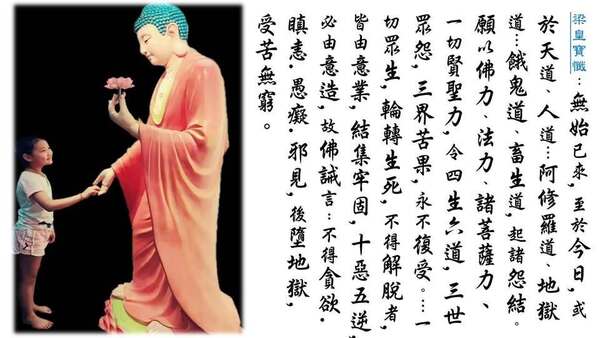 梁皇寶懺：無始已來，至於今日，或
於天道、人道…阿修羅道、地獄
道…餓鬼道、畜生道，起諸怨結。
願以佛力、法力、諸菩薩力、
一切賢聖力，令四生六道，三世
眾怨，三界苦果，永不復受。…一
切眾生，輪轉生死，不得解脫者，
皆由意業，結集牢固，十惡五逆，
必由意造，故佛誡言：不得貪欲．
瞋恚．愚癡．邪見，後墮地獄，
受苦無窮。